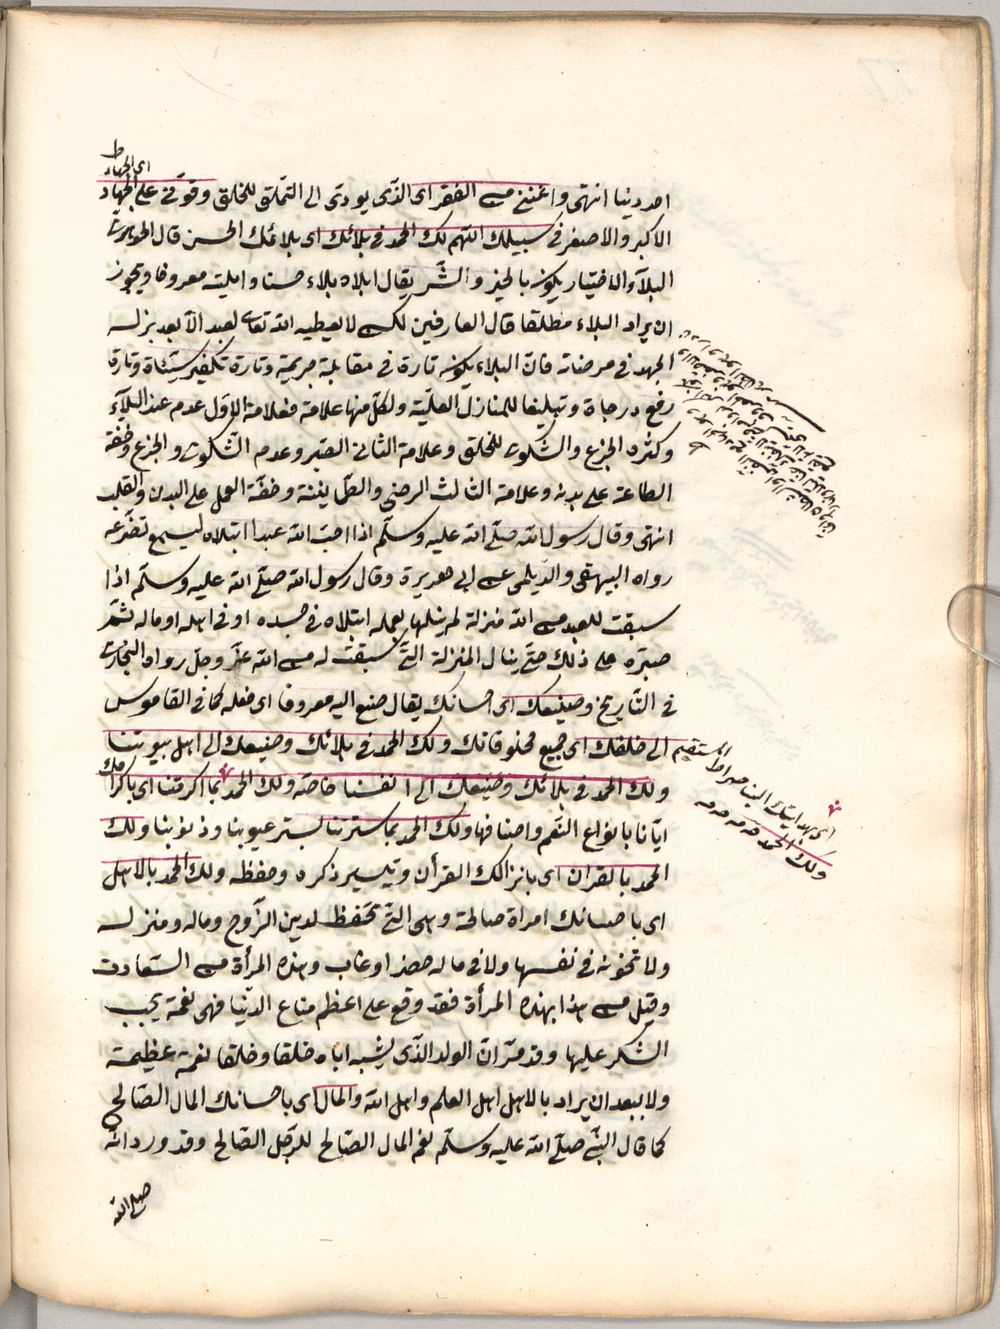 اى الجهاد ط
امر ديننا انتهى واغننى من الفقر اى الذى يودى الى التملق للخلق وقونى على الجهاد
الاكبر والاصغر فى سبيلك اللهم لك الحمد فى بلائك اى بلاءك الحسن قال الجوهرى
البلاء والاختيار يكون بالخير والشر يقال ابلاه بلاء حسنا وابليته معروفا ويجوز
ان يراد البلاء مطلقا قال العارفين لكن لا يعطيه الله تعالى لعبد الا بعد بذله
الجهد فى مرضاته فان البلاء يكون تارة فى مقابلة جريمة وتارة تكفير سيئات وتارة
رفع درجاة وتبليغا للمنازل العلية ولكل منها علامة فعلامة الاول عدم عند البلاء
وكثره الجزع والشكوى للخلق وعلامة الثانى الصبر وعدم الشكوى والجزع وخفة
الطاعة على بدنه وعلامة الثالث الرضى والطمأنينة وخفة العمل على البدن والقلب
انتهى وقال رسول الله صلى الله عليه وسلم اذا احب الله عبدا ابتلاه ليسمع تضرعه
رواه البيهقى والديلمى عن ابى هريرة وقال رسول الله صلى الله عليه وسلم اذا
سبقت للعبد من الله منزلة لم ينلها بعمله ابتلاه فى جسده او فى اهله او ماله ثم
صبره على ذلك حتى ينال المنزلة التى سبقت له من الله عز وجل رواه البخارى
فى التاريخ وصنيعك اى احسانك يقال صنع اليه معروفا اى فعله كما فى القاموس
الى خلقك اى جميع مخلوقاتك ولك الحمد فى بلائك وصنيعك الى اهل بيوتنا
ولك الحمد فى بلائك وصنيعك الى انفسنا خاصة ولك الحمد بما اكرمتنا اى باكرامك
ايانا بانواع النعم واصنافها ولك الحمد بما سترتنا بستر عيوبنا وذنوبنا ولك
الحمد بالقران اى بانزالك القرأن وتيسير ذكره وحفظه ولك الحمد بالاهل
اى باحسانك امراة صالحة وهى التى تحفظ لدين الزوج وماله ومنزله
ولا تخونه فى نفسها ولا فى ماله حضر او غاب وهذه المرأة من السعادت
وقيل من هذا بهذه المرأة فقد وقع على اعظم متاع الدنيا فهى نعمة يجب
الشكر عليها وقد مر ان الولد الذى يشبه اباه خلقا وخلقا نعمة عظيمة
ولا يبعد ان يراد بالاهل اهل العلم واهل الله والمال اى باحسانك المال الصالح
كما قال النبى صلى الله عليه وسلم نعم المال الصالح للرجل الصالح وقد ورد انه
صلى الله
اى بهدايتك الينا صراط المستقيم
ولك الحمد